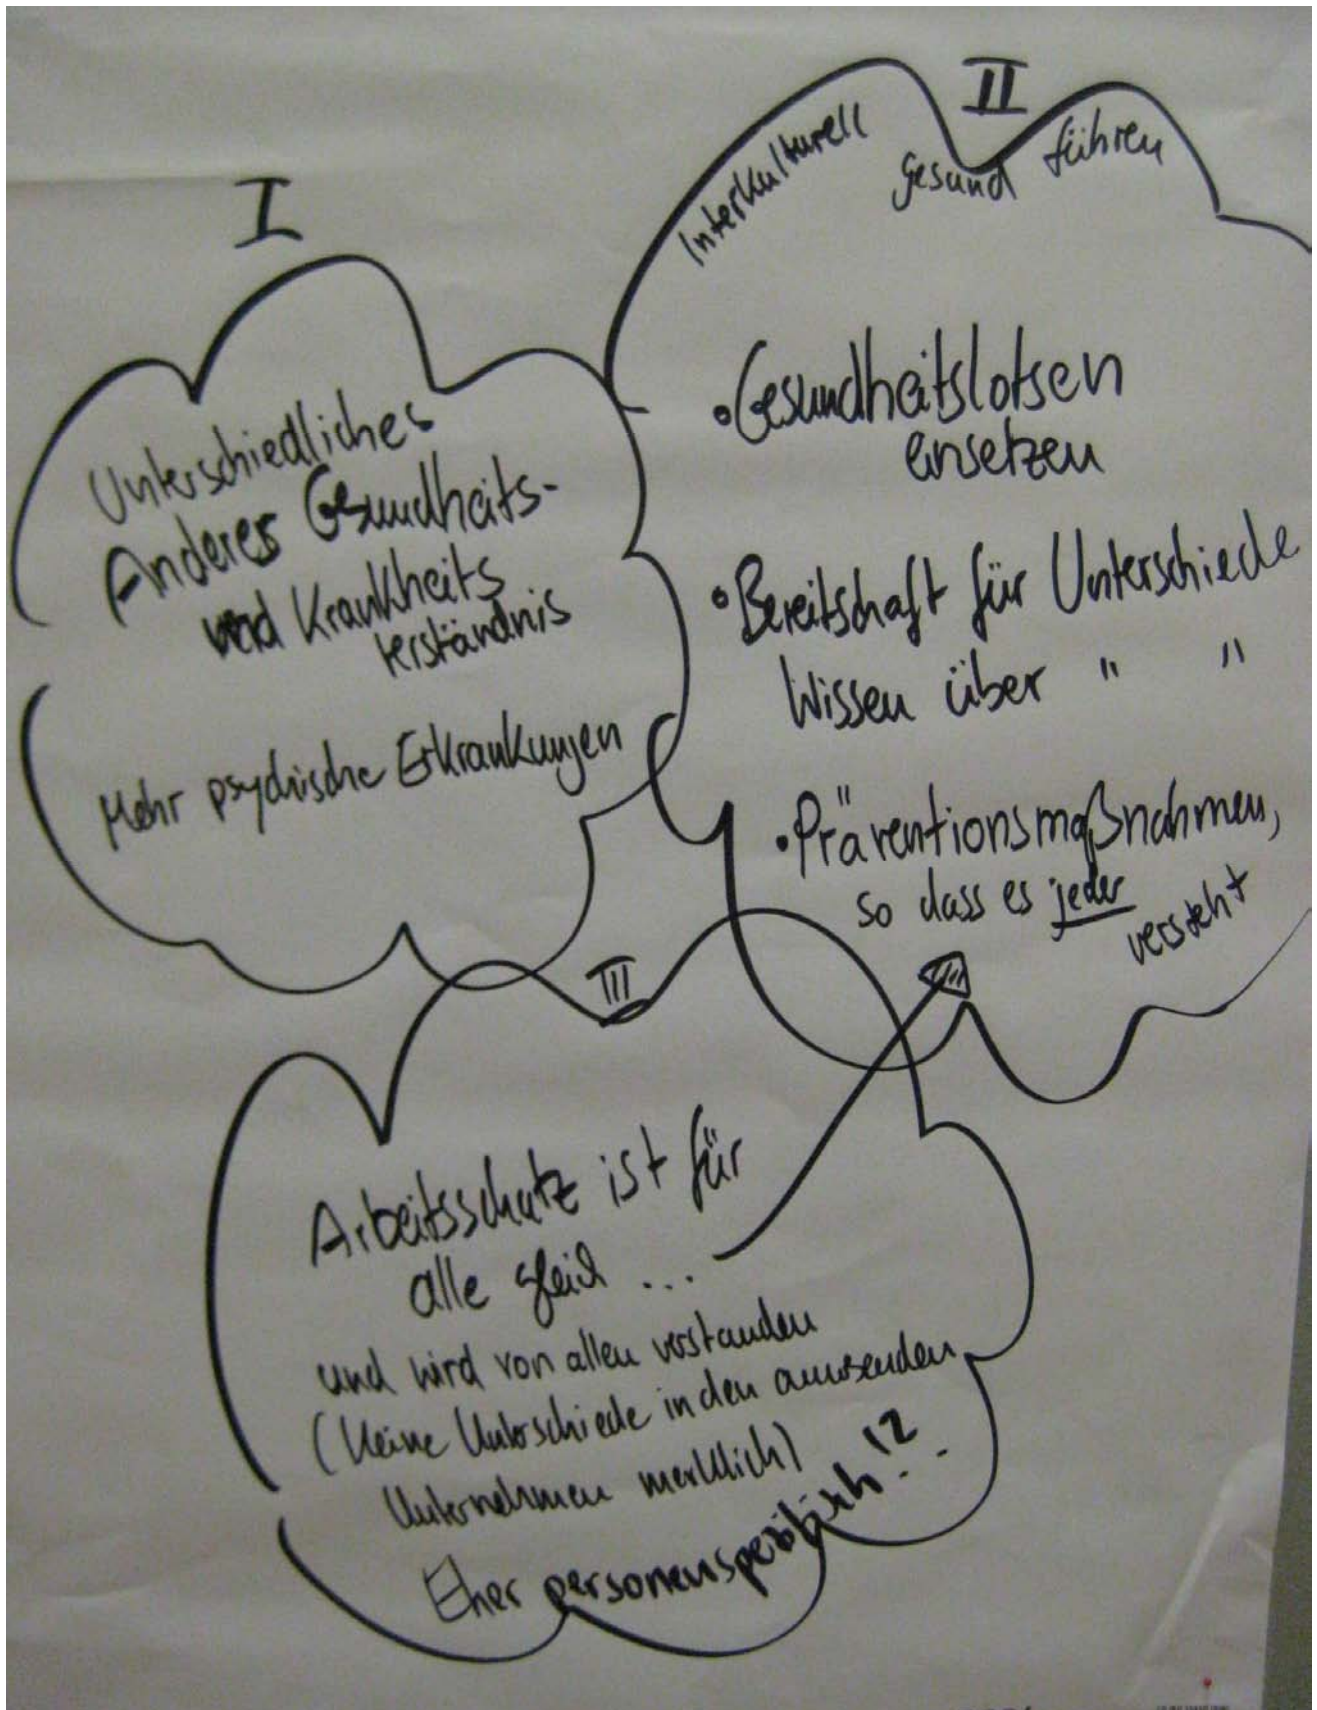 I
Unterschiedliches
Anderes Gesundheits-
und Krankheits
verständnis
Mehr psychische Erkrankungen
II
Interkulturell gesund führen
• Gesundheitslotsen
einsetzen
• Bereitschaft für Unterschiede
Wissen über " "
• Präventionsmaßnahmen,
so dass es jeder
versteht
III
Arbeitsschutz ist für
alle gleich ...
und wird von allen verstanden
(Keine Unterschiede in den anwesenden
Unternehmen merklich)
Eher personenspezifisch!?